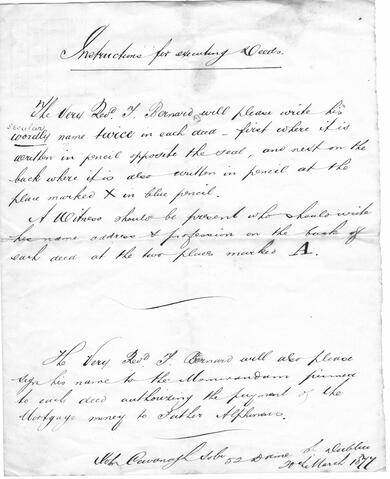 Instructions for executing Deeds.
The Very Revd. F. Bernard will please write his
secular
wordly name twice in each deed - first where it is
written in pencil opposite the seal, and next on the
back where it is also written in pencil at the
place marked X in blue pencil.
A Witness should be present who should write
his name address & profession on the back of
each deed at the two places marked A.
The Very Revd. F. Bernard will also please
sign his name to the Memorandum pinned
to each deed authorizing the payment of the
Mortgage money to Father Alphonsus.
Cavanagh Solr 52 Dame St Dublin
20th March 1877